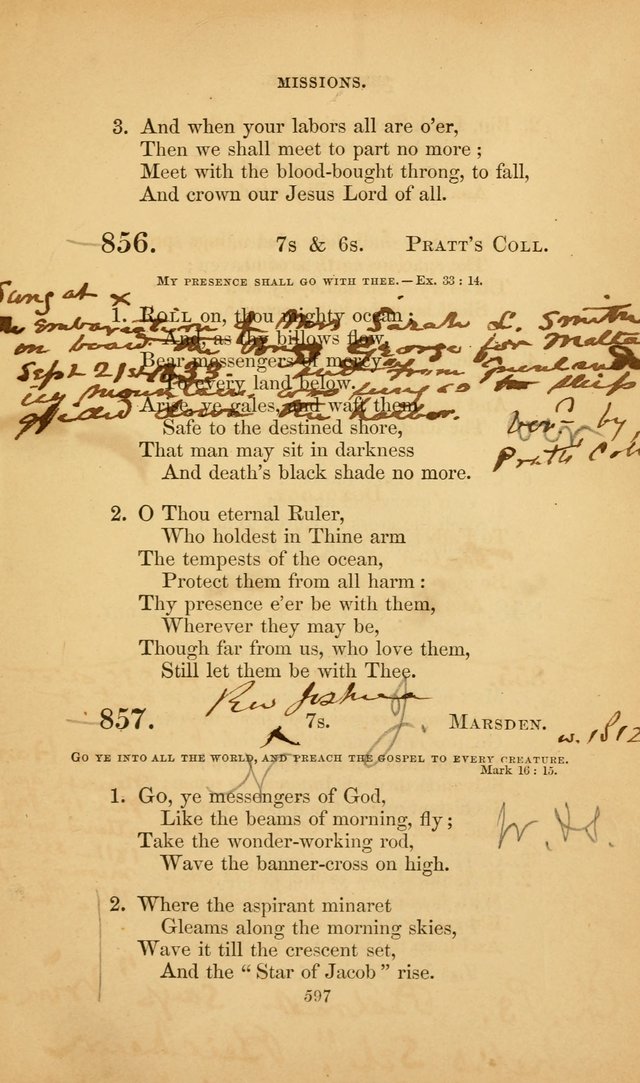 MISSIONS.
3. And when your labors all are o'er,
Then we shall meet to part no more;
Meet with the blood-bought throng, to fall,
And crown our Jesus Lord of all.
856. 7s & 6s. PRATT'S COLL.
MY PRESENCE SHALL GO WITH THEE.—EX. 33 : 14.
Sung at x
1. ROLL on, thou mighty ocean;
Embarkation of Mrs Sarah L. Smith
And, as thy billows flow,
on board the brig George for Malta
Bear messengers of mercy
Sept 21st 1833. from Greenland's
To every land below.
icy mountains was sung as the ship
Arise, ye gales, and waft them
glided down the harbor.
Safe to the destined shore,
by
That man may sit in darkness
Pratts Coll
And death's black shade no more.
2. O Thou eternal Ruler,
Who holdest in Thine arm
The tempests of the ocean,
Protect them from all harm:
Thy presence e'er be with them,
Wherever they may be,
Though far from us, who love them,
Still let them be with Thee.
Rev Joshua
857. 7s. J. MARSDEN. w. 1812
GO YE INTO ALL THE WORLD, AND PREACH THE GOSPEL TO EVERY CREATURE.
Mark 16 : 15.
1. Go, ye messengers of God,
Like the beams of morning, fly;
Take the wonder-working rod,
W. H. S.
Wave the banner-cross on high.
2. Where the aspirant minaret
Gleams along the morning skies,
Wave it till the crescent set,
And the "Star of Jacob" rise.
597